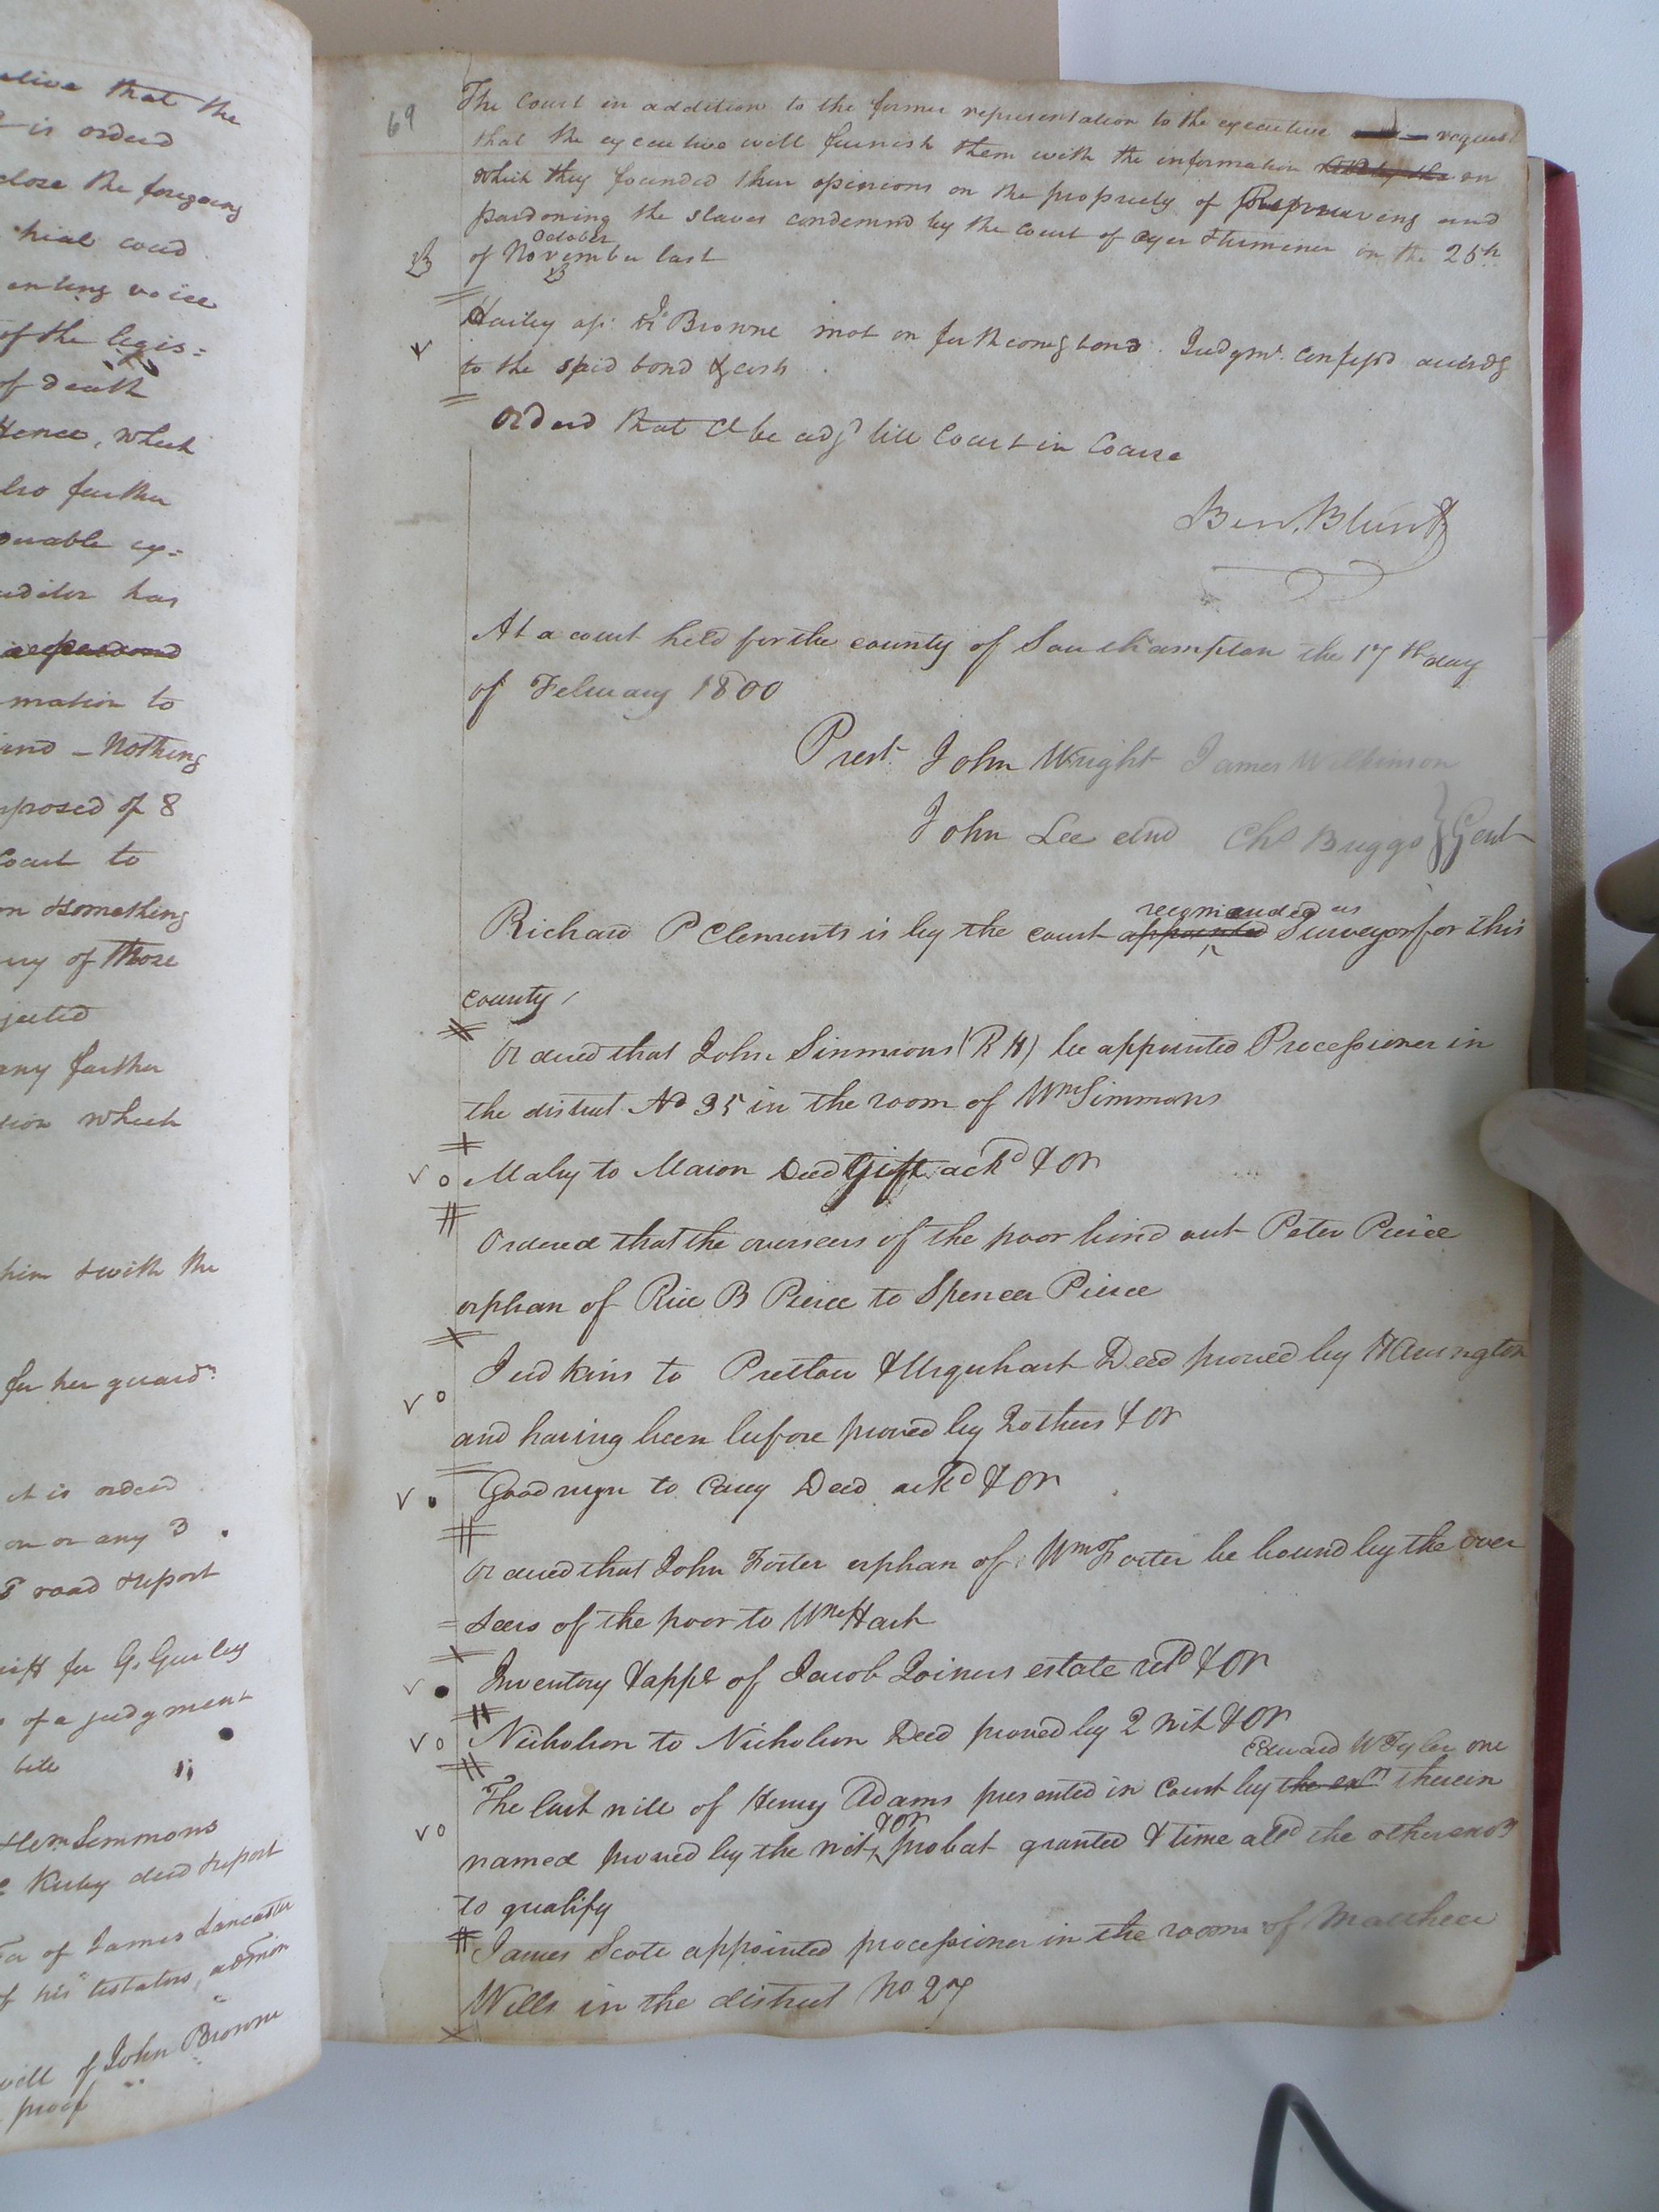 alive that the
is ordered
close the foregoing
trial coud
enting voice
of the legis=
of death
tence, which
also further
ourable ex=
uditor has
mation to
and - Nothing
mposed of 8
Court to
on & something
ury of those
jected
any further
tion which
him & with the
for her guardn
it is orderd
on or any 3
road & report
riff for G. Gurley
of a judgment
bill
Wm Simmons
Kirby deed & report
Exr of James Lancaster
of his testators, admon
will of John Browne
proof
69
The Court in addition to the former representation to the executive request
that the executive will furnish them with the information on
which they founded their opinions on the propriety of reprieving and
pardoning the slaves condemnd by the court of oyer & terminer on the 25th
October
of November last
Hailey agt Browne mot on forthcomg bond. Judgmt. confessd accordg
to the said bond & costs
Orderd that Ct be adjd till Court in Course
Ben. Blunt
At a court held for the county of Southampton the 17th day
of February 1800
Prest John Wright James Wilkinson
John Lee and Chs Briggs } Gent
recomended as
Richard P Clements is by the court appointed Surveyor for this
county
Ordered that John Simmons (R H) be appointed Processioner in
the district No 35 in the room of Wm Simmons
Malry to Mason Deed Gift ackd & OR
Ordered that the overseers of the poor bind out Peter Peirce
orphan of Rice B Peirce to Spencer Peirce
Judkins to Pretlow & Urquhart Deed proved by Harrington
and having been before proved by 2 others & OR
Goodwyn to Carey Deed ackd & OR
Ordered that John Foster orphan of Wm Foster be bound by the over
= seers of the poor to Wm Hart
Inventory & appt of Jacob Joiners estate retd & OR
Nicholson to Nicholson Deed proved by 2 wit & OR
Edward W Tyler one
The last will of Henry Adams presented in Court by the exn therein
& OR
named proved by the wit probat granted & time alld the other exors
to qualify
James Scott appointed processioner in the room of Matthew
Wills in the district No 27